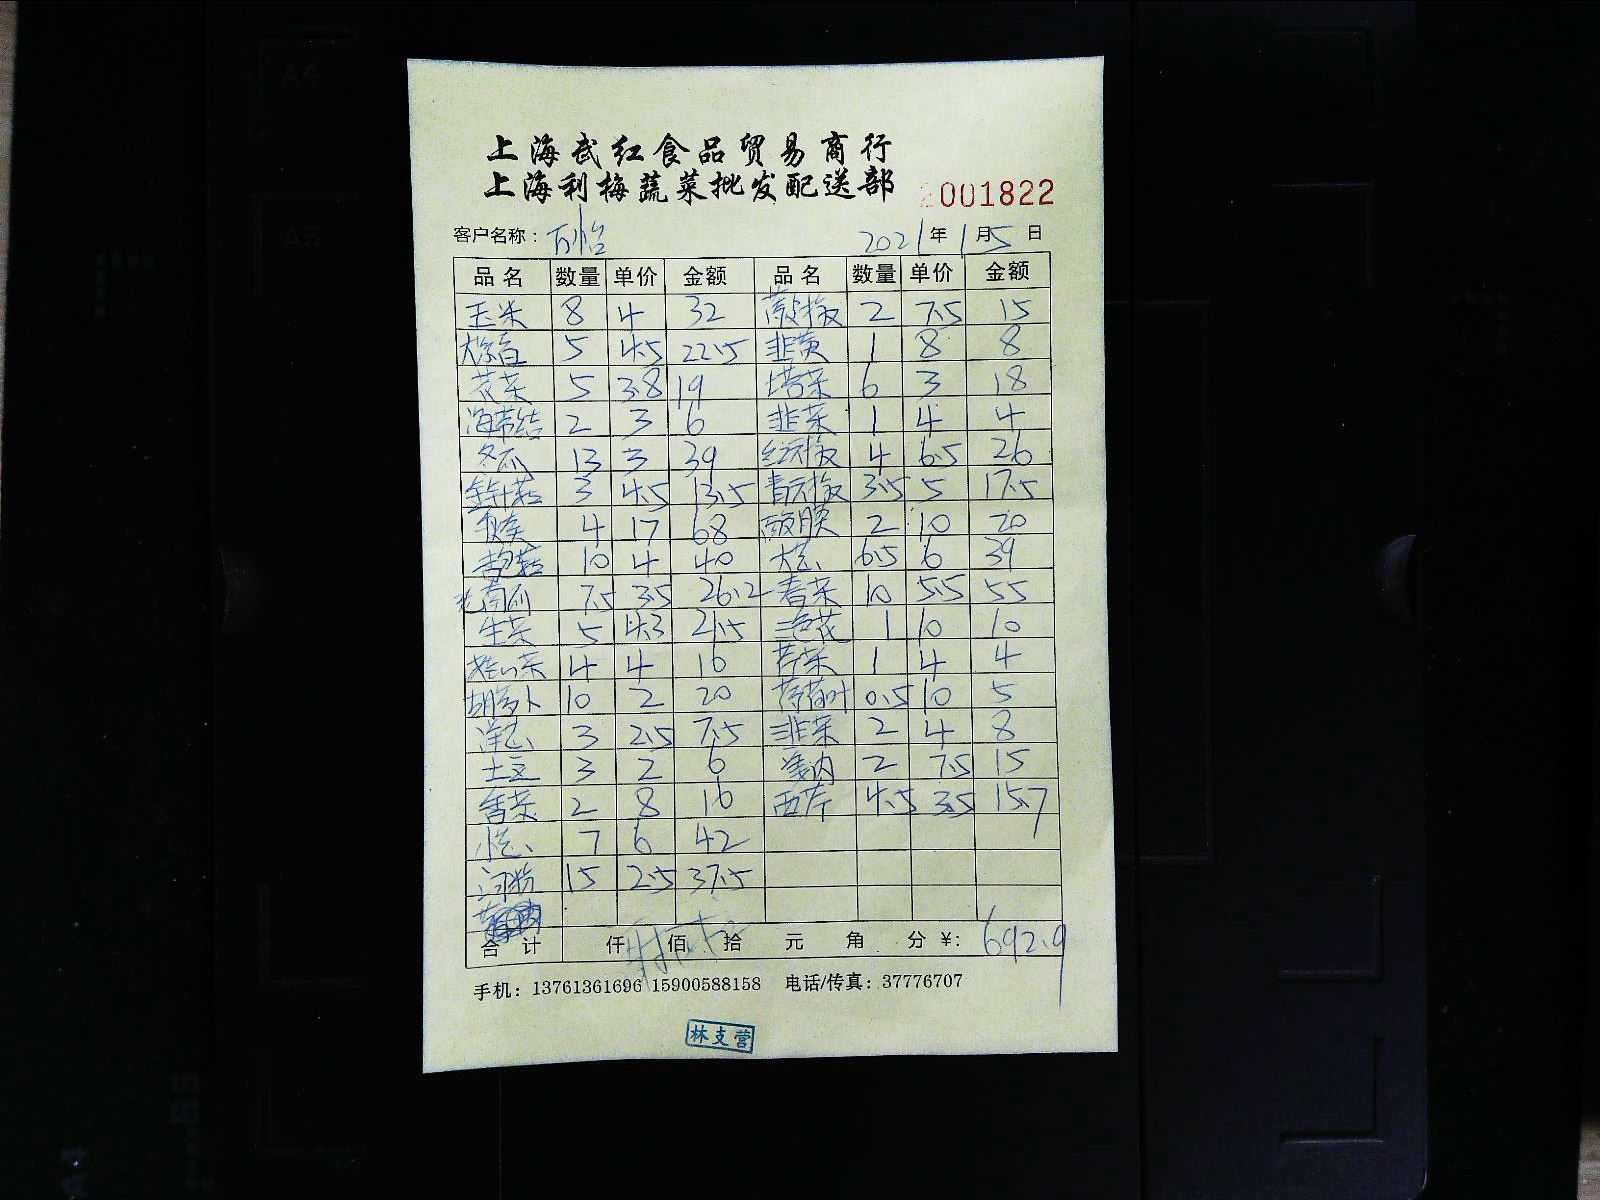 上海武红食品贸易商行
上海利梅蔬菜批发配送部 2001822
客户名称： 2021年1月5日
品名 数量 单价 金额 品名 数量 单价 金额
玉米 8 4 32 2 7.5 15
5 4.5 22.5 韭黄 1 8 8
花菜 5 3.8 19 塔菜 6 3 18
海带结 2 3 6 韭菜 1 4 4
冬瓜 13 3 39 红元椒 4 6.5 26
金针菇 3 4.5 13.5 青元椒 3.5 5 17.5
4 17 68 2 10 20
10 4 40 大葱 6.5 6 39
老南瓜 7.5 3.5 26.2 春菜 10 5.5 55
生菜 5 4.3 21.5 三色花 1 10 10
4 4 16 芹菜 1 4 4
胡萝卜 10 2 20 薄荷叶 0.5 10 5
洋葱 3 2.5 7.5 韭菜 2 4 8
土豆 3 2 6 2 7.5 15
香菜 2 8 16 西芹 4.5 3.5 15.7
小葱 7 6 42
河粉 15 2.5 37.5
合计 仟 佰 拾 元 角 分 ¥: 692.9
手机：13761361696 15900588158 电话/传真：37776707
林支营